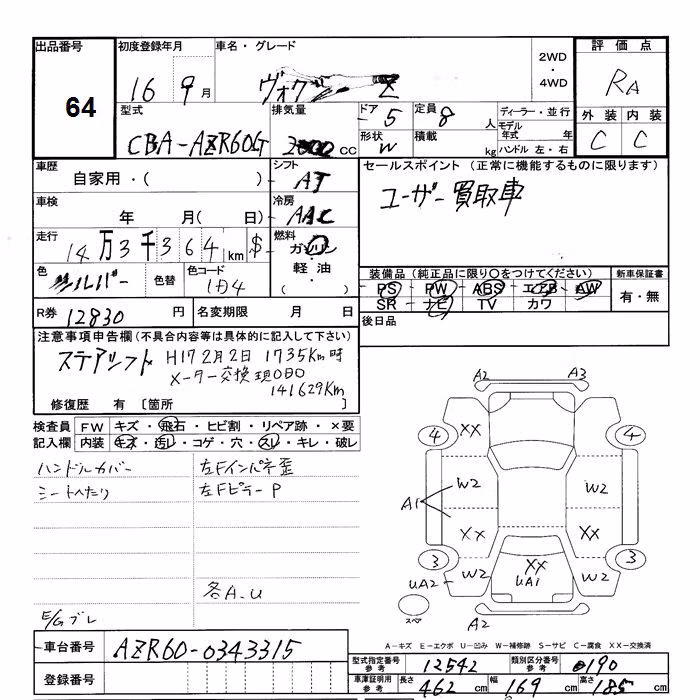 出品番号
64
初度登録年月
16 9月
車名・グレード
ヴォクシー Z
2WD
・
4WD
評価点
RA
外装 内装
C C
型式
CBA-AZR60G
排気量
2000 cc
ドア 5
形状 W
定員 8人
積載 kg
ディーラー・並行
モデル年式 年
ハンドル 左・右
車歴
自家用・( )
シフト
AT
セールスポイント (正常に機能するものに限ります)
ユーザー買取車
車検
年 月( 日)
冷房
AAC
走行
14万3千364km $
燃料
ガソリン
軽油
( )
色
シルバー
色替
色コード
1D4
装備品(純正品に限り○をつけてください)
PS PW ABS エアB AW
SR ナビ TV カワ
新車保証書
有・無
R券 12830円
名変期限 月 日
後日品
注意事項申告欄(不具合内容等は具体的に記入して下さい)
ステアシフト H17 2月2日 1735Km時
メーター交換 現ODO
141629Km
修復歴 有 [箇所 ]
検査員記入欄
FW キズ・飛石・ヒビ割・リペア跡・×要
内装 キズ・汚レ・コゲ・穴・スレ・キレ・破レ
ハンドルカバー
シートへたり
左Fインパネ歪
左FピラーP
各A.U
E/Gブレ
A2 A3
4 XX 4
W2 W2
A1
XX XX
3 3
XX
UA2 W2 UA1 W2
スペア
A2
A-キズ E-エクボ U-凹み W-補修跡 S-サビ C-腐食 XX-交換済
車台番号 AZR60-0343315
登録番号
型式指定番号 参考 12542
類別区分番号 参考 0190
車庫証明用 参考 長さ 462cm 幅 169cm 高さ 185cm